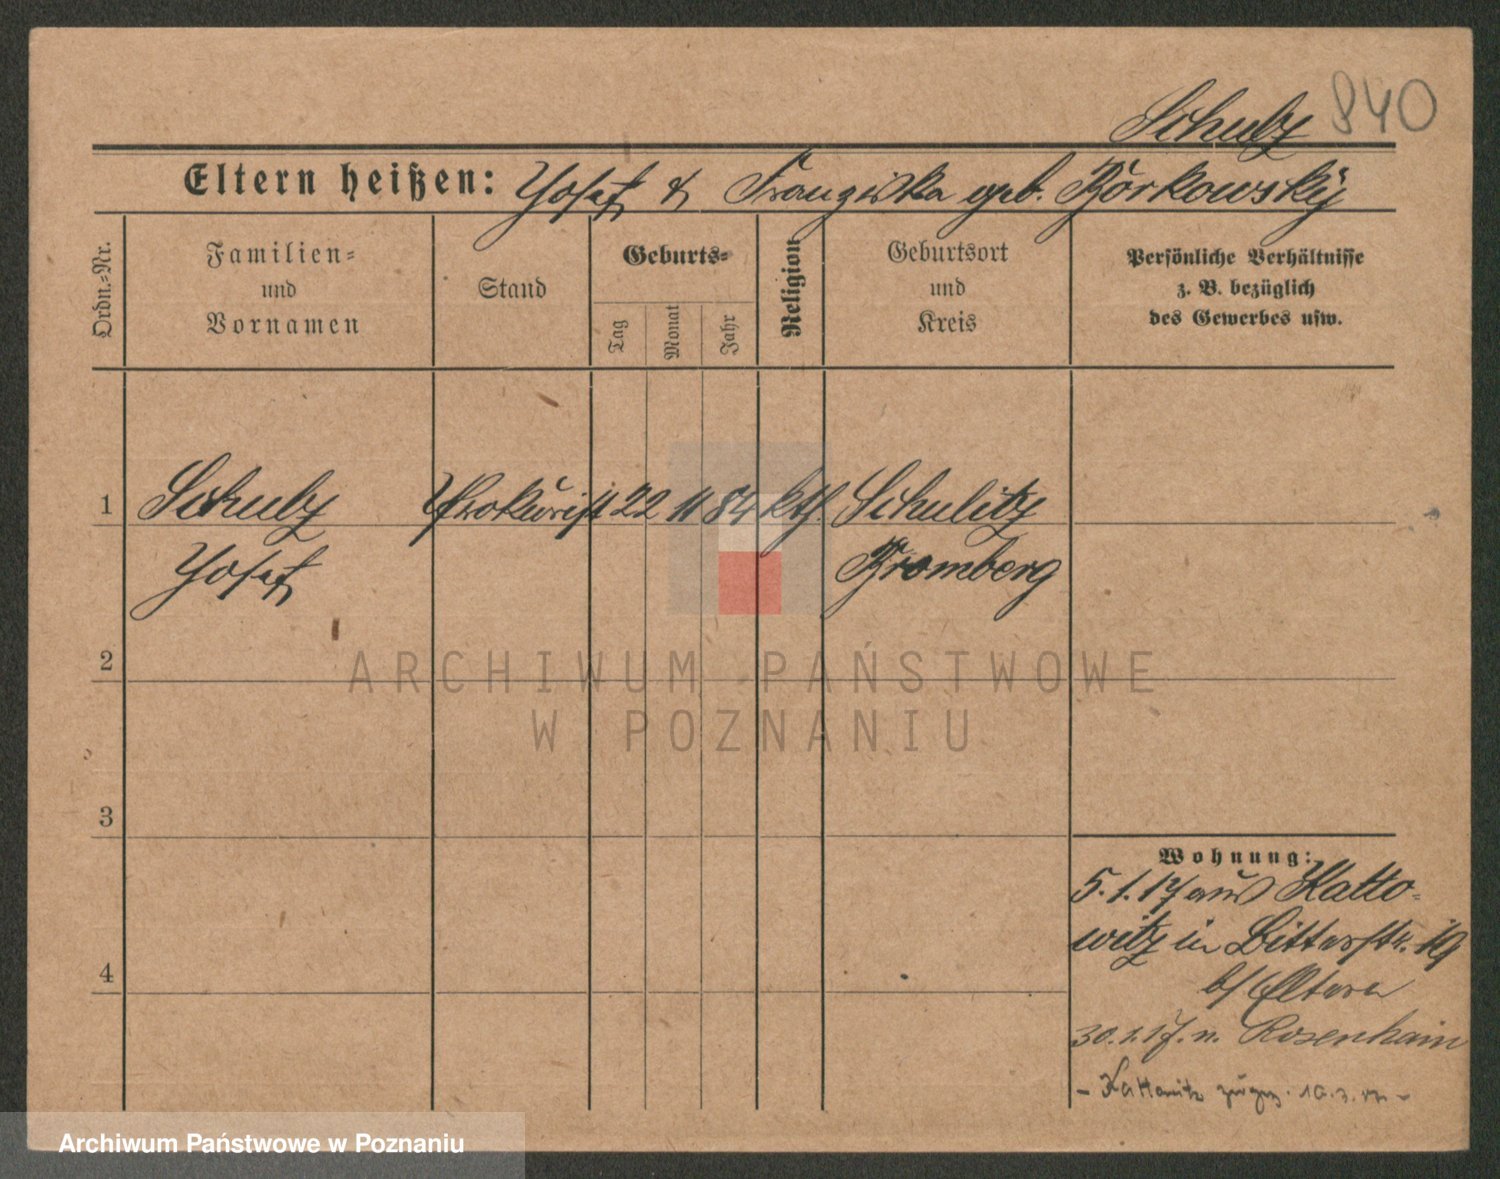 Schulz 840
Eltern heißen: Josef & Franziska geb. Borkowsky
Ordn.-Nr.
Familien-
und
Vornamen
Stand
Geburts-
Tag
Monat
Jahr
Religion
Geburtsort
und
Kreis
Persönliche Verhältnisse
z. B. bezüglich
des Gewerbes usw.
1 Schulz Prokurist 22 11 84 kth. Schulitz
Josef Bromberg
2
3
4
Wohnung:
5.1.17 aus Katto-
witz in Bitterstr. 19
b/ Eltern
30.1.17. n. Rosenhain
- Kattowitz 10.3.17 -
ARCHIWUM PAŃSTWOWE
W POZNANIU
Archiwum Państwowe w Poznaniu